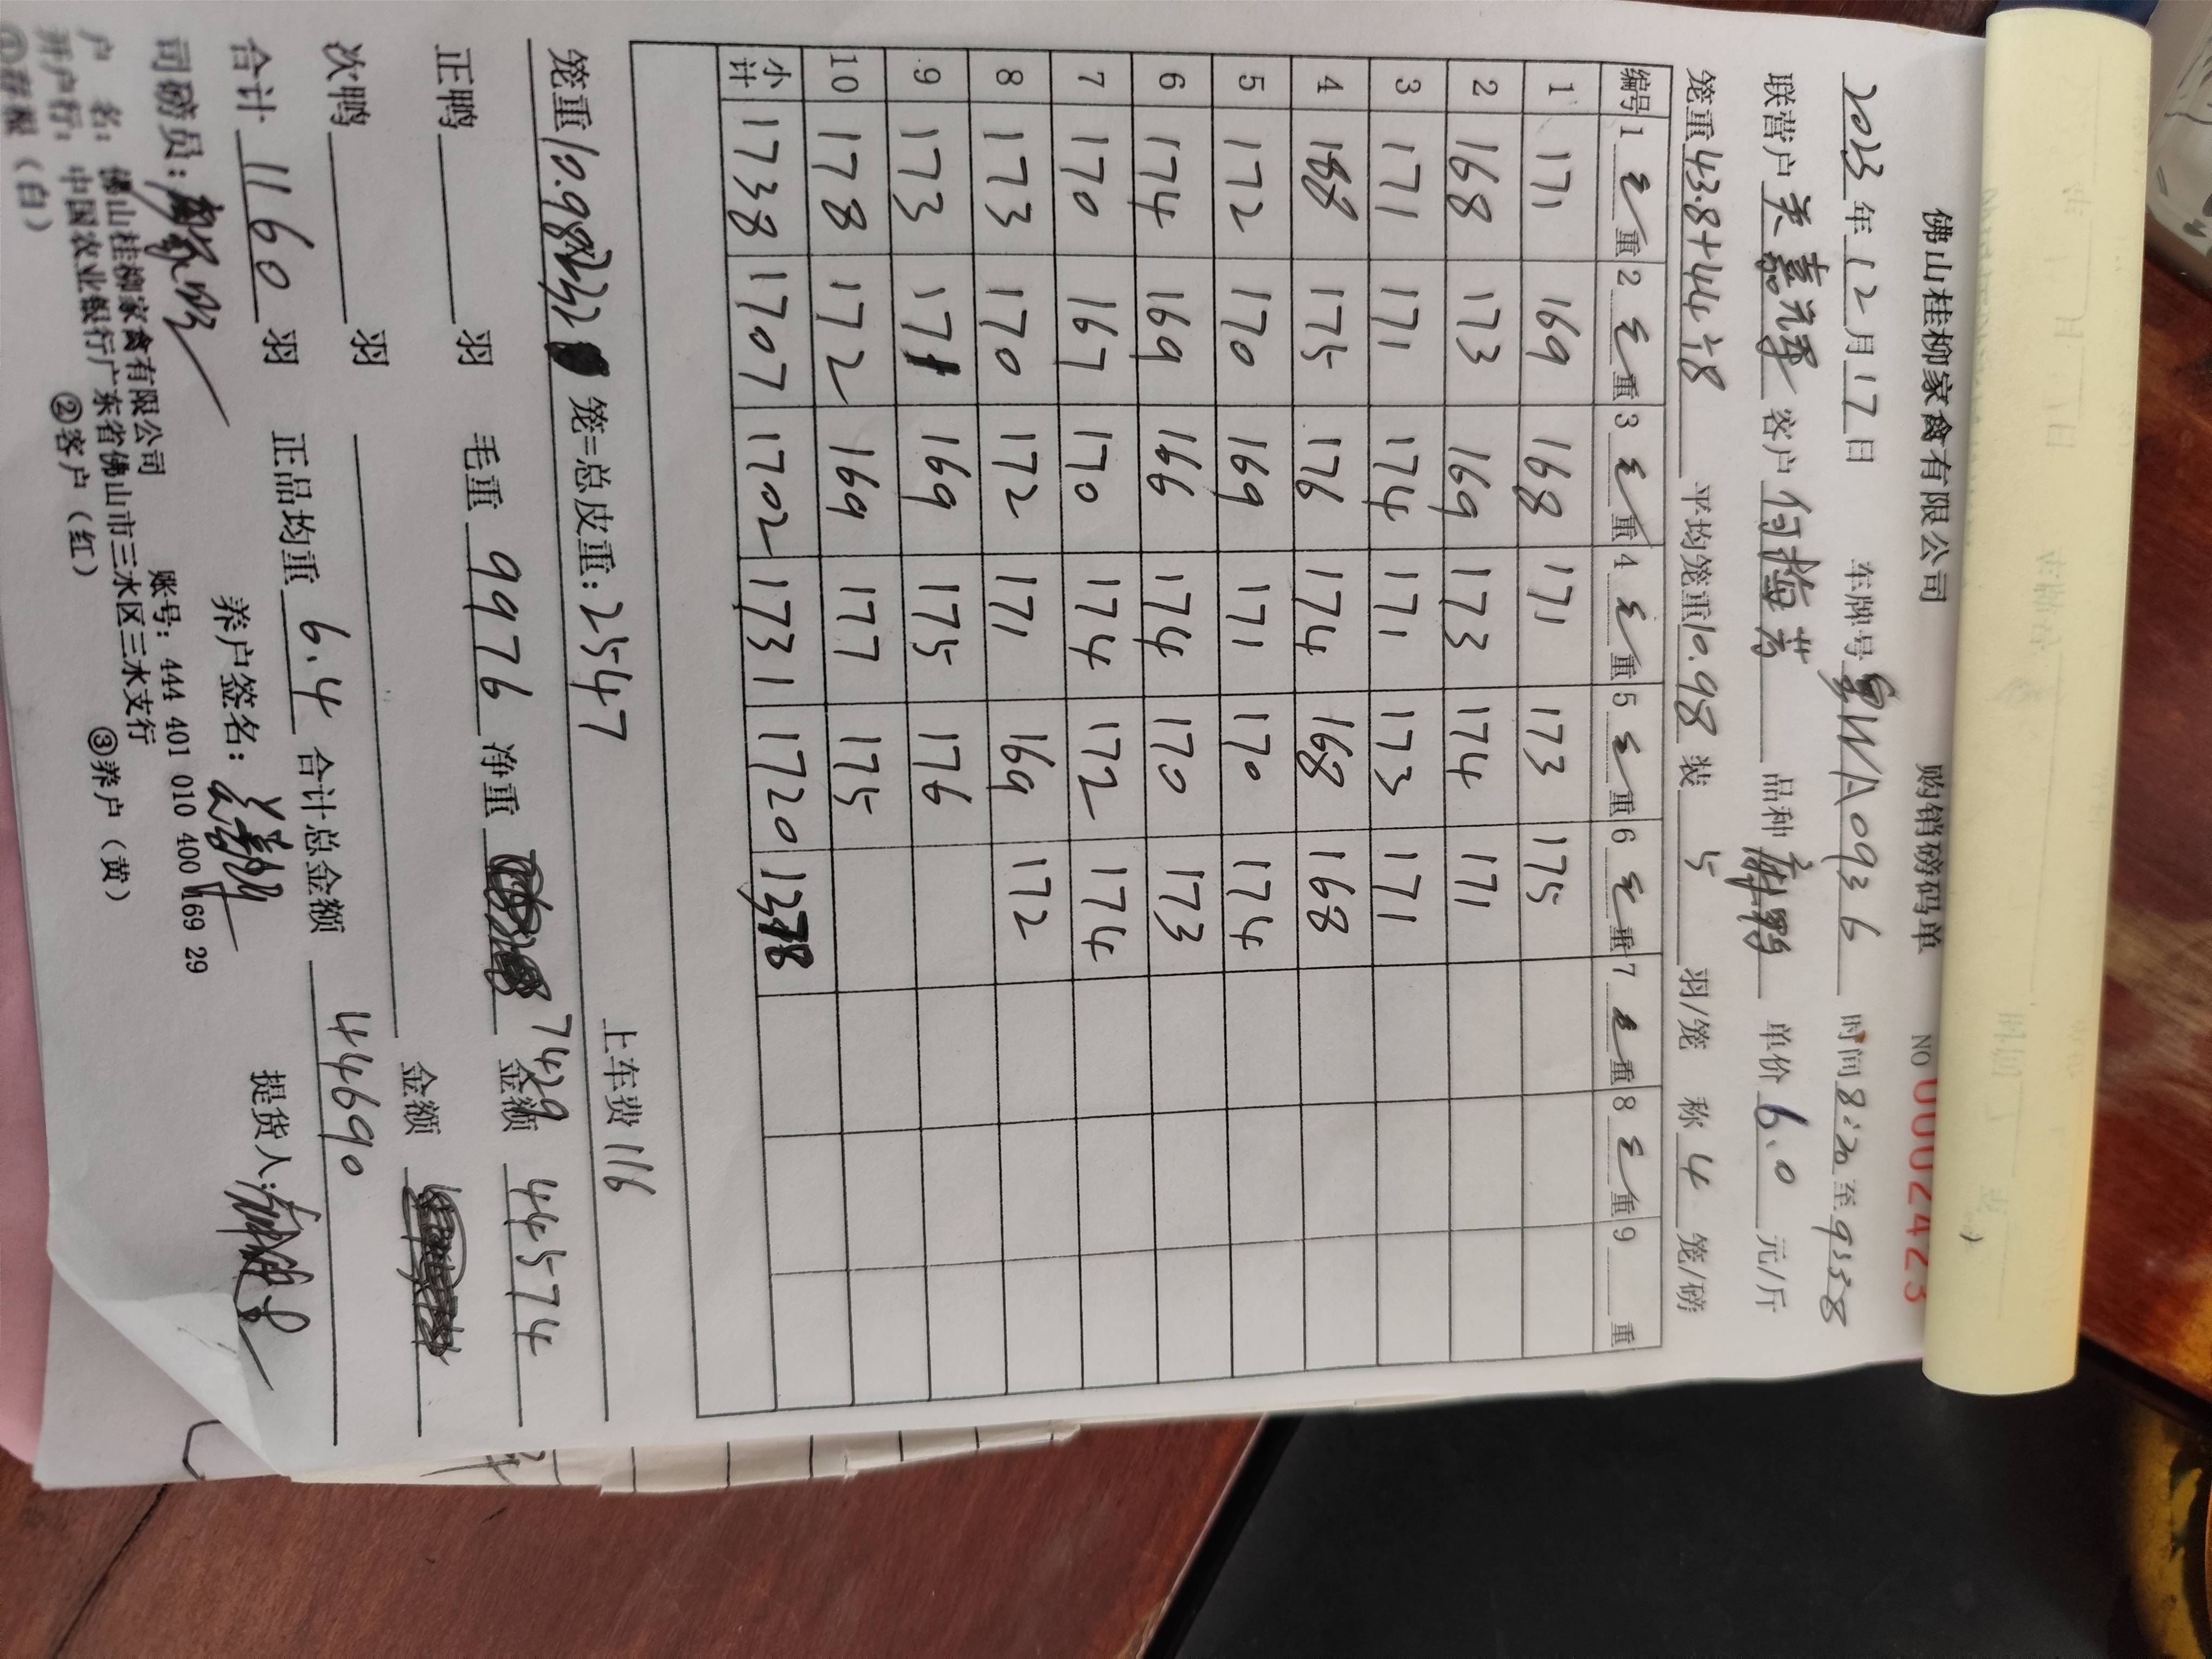 佛山桂柳家禽有限公司 购销磅码单 NO 0002423
2023年12月17日 车牌号粤W1A0936 时间8:20至9:38
联营户 关嘉元泽 客户 何梅芳 品种 麻鸭 单价 6.0 元/斤
笼重43.8+44÷8 平均笼重10.98 装 5 羽/笼 称 4 笼/磅
编号 1 毛重 2 毛重 3 毛重 4 毛重 5 毛重 6 毛重 7 毛重 8 毛重 9 重
1 171 169 168 171 173 175
2 168 173 169 173 174 171
3 171 171 174 171 173 171
4 188 175 176 174 168 168
5 172 170 169 171 170 174
6 174 169 166 174 170 173
7 170 167 170 174 172 174
8 173 170 172 171 169 172
9 173 171 169 175 176
10 178 172 169 177 175
小计 1738 1707 1702 1731 1720 1378
笼重10.98×232 笼=总皮重:2547 上车费116
正鸭 羽 毛重 9976 净重 7429 金额 44574
次鸭 羽 金额
合计 1160 羽 正品均重 6.4 合计总金额 44690
司磅员: 养户签名: 提货人:
户 名: 佛山桂柳家禽有限公司 账号: 444 401 010 400 169 29
开户行: 中国农业银行广东省佛山市三水区三水支行
①存根(白) ②客户(红) ③养户(黄)